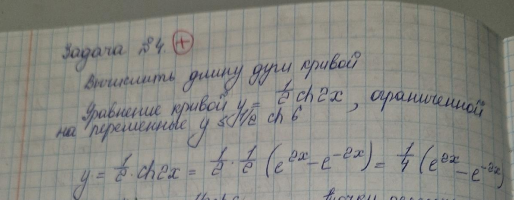 Задача №4 +
Вычислить длину дуги кривой
Уравнение кривой y = 1/2 ch2x, ограниченной
на переменные y ≤ 1/2 ch 6
y = 1/2 · ch2x = 1/2 · 1/2 (e^2x − e^−2x) = 1/4 (e^2x − e^−2x)